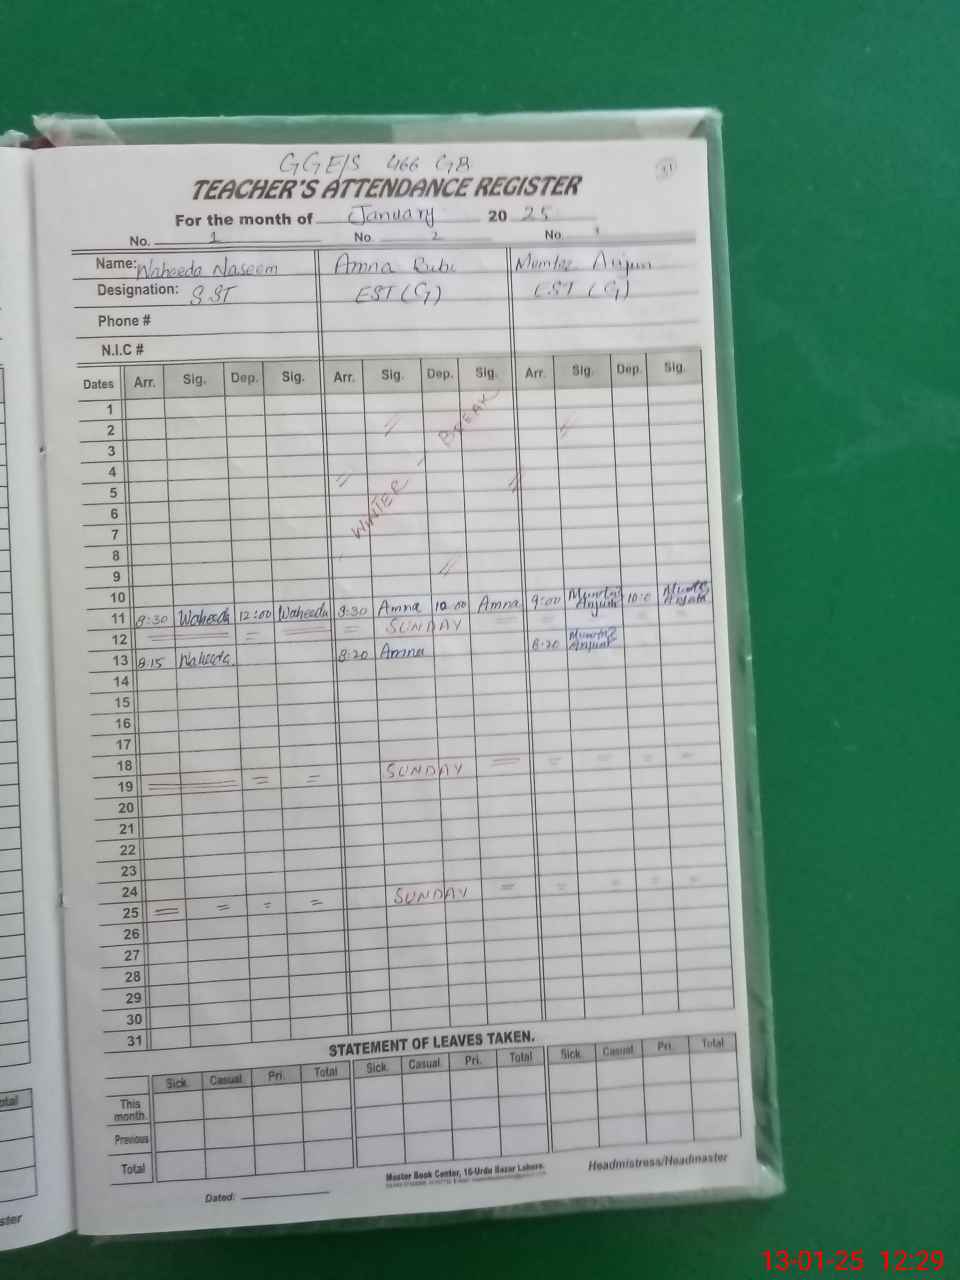 GGE/S 466 GB
TEACHER'S ATTENDANCE REGISTER
For the month of January 20 25
No. 1 No 2 No.
Name: Waheeda Naseem Amna Bibi Mumtaz Anjum
Designation: SST EST (G) EST (G)
Phone #
N.I.C #
Dates Arr. Sig. Dep. Sig. Arr. Sig. Dep. Sig. Arr. Sig. Dep. Sig.
1
2
3
4
5
6
7
8
9
WINTER - BREAK
10
11 8:30 Waheeda 12:00 Waheeda 9:30 Amna 10:00 Amna 9:00 Mumtaz Anjum 10:0 Mumtaz Anjum
12 SUNDAY
13 8:15 Waheeda 8:20 Amna 8:20 Mumtaz Anjum
14
15
16
17
18
19 SUNDAY
20
21
22
23
24
25 SUNDAY
26
27
28
29
30
31
STATEMENT OF LEAVES TAKEN.
Sick. Casual Pri. Total Sick. Casual Pri. Total Sick. Casual Pri. Total
This month.
Previous
Total
Master Book Center, 16-Urdu Bazar Lahore.
Headmistress/Headmaster
Dated:
otal
ster
13-01-25 12:29